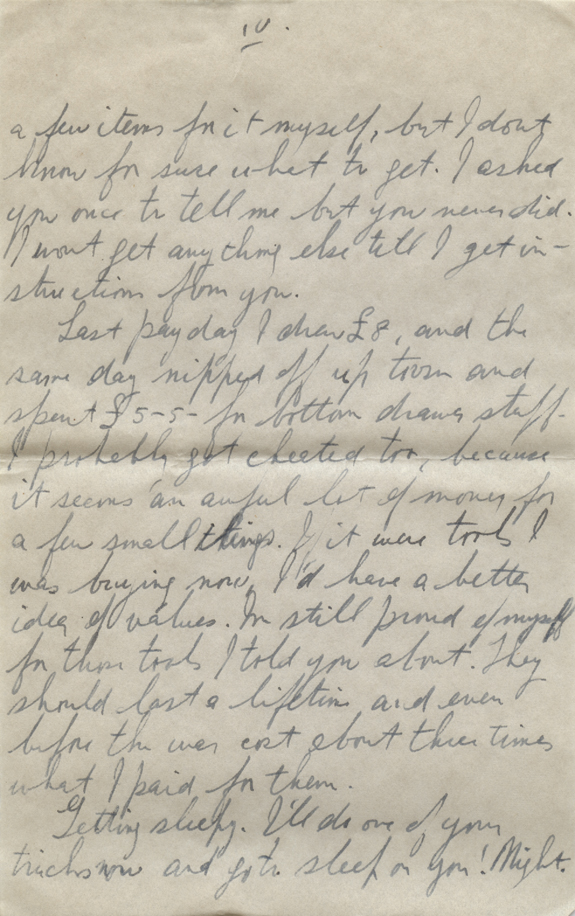 10.
a few items for it myself, but I dont
know for sure what to get. I asked
you once to tell me but you never did.
I wont get anything else till I get in-
structions from you.
Last pay day I drew £8, and the
same day nipped off up town and
spent £5-5- for bottom drawer stuff.
I probably got cheeted too, because
it seems an awful lot of money for
a few small things. If it were tools I
was buying now, I'd have a better
idea of values. Im still proud of myself
for those tools I told you about. They
should last a lifetime and even
before the war cost about three times
what I paid for them.
Getting sleepy. I'll do one of your
tricks now and go to sleep on you! Night.